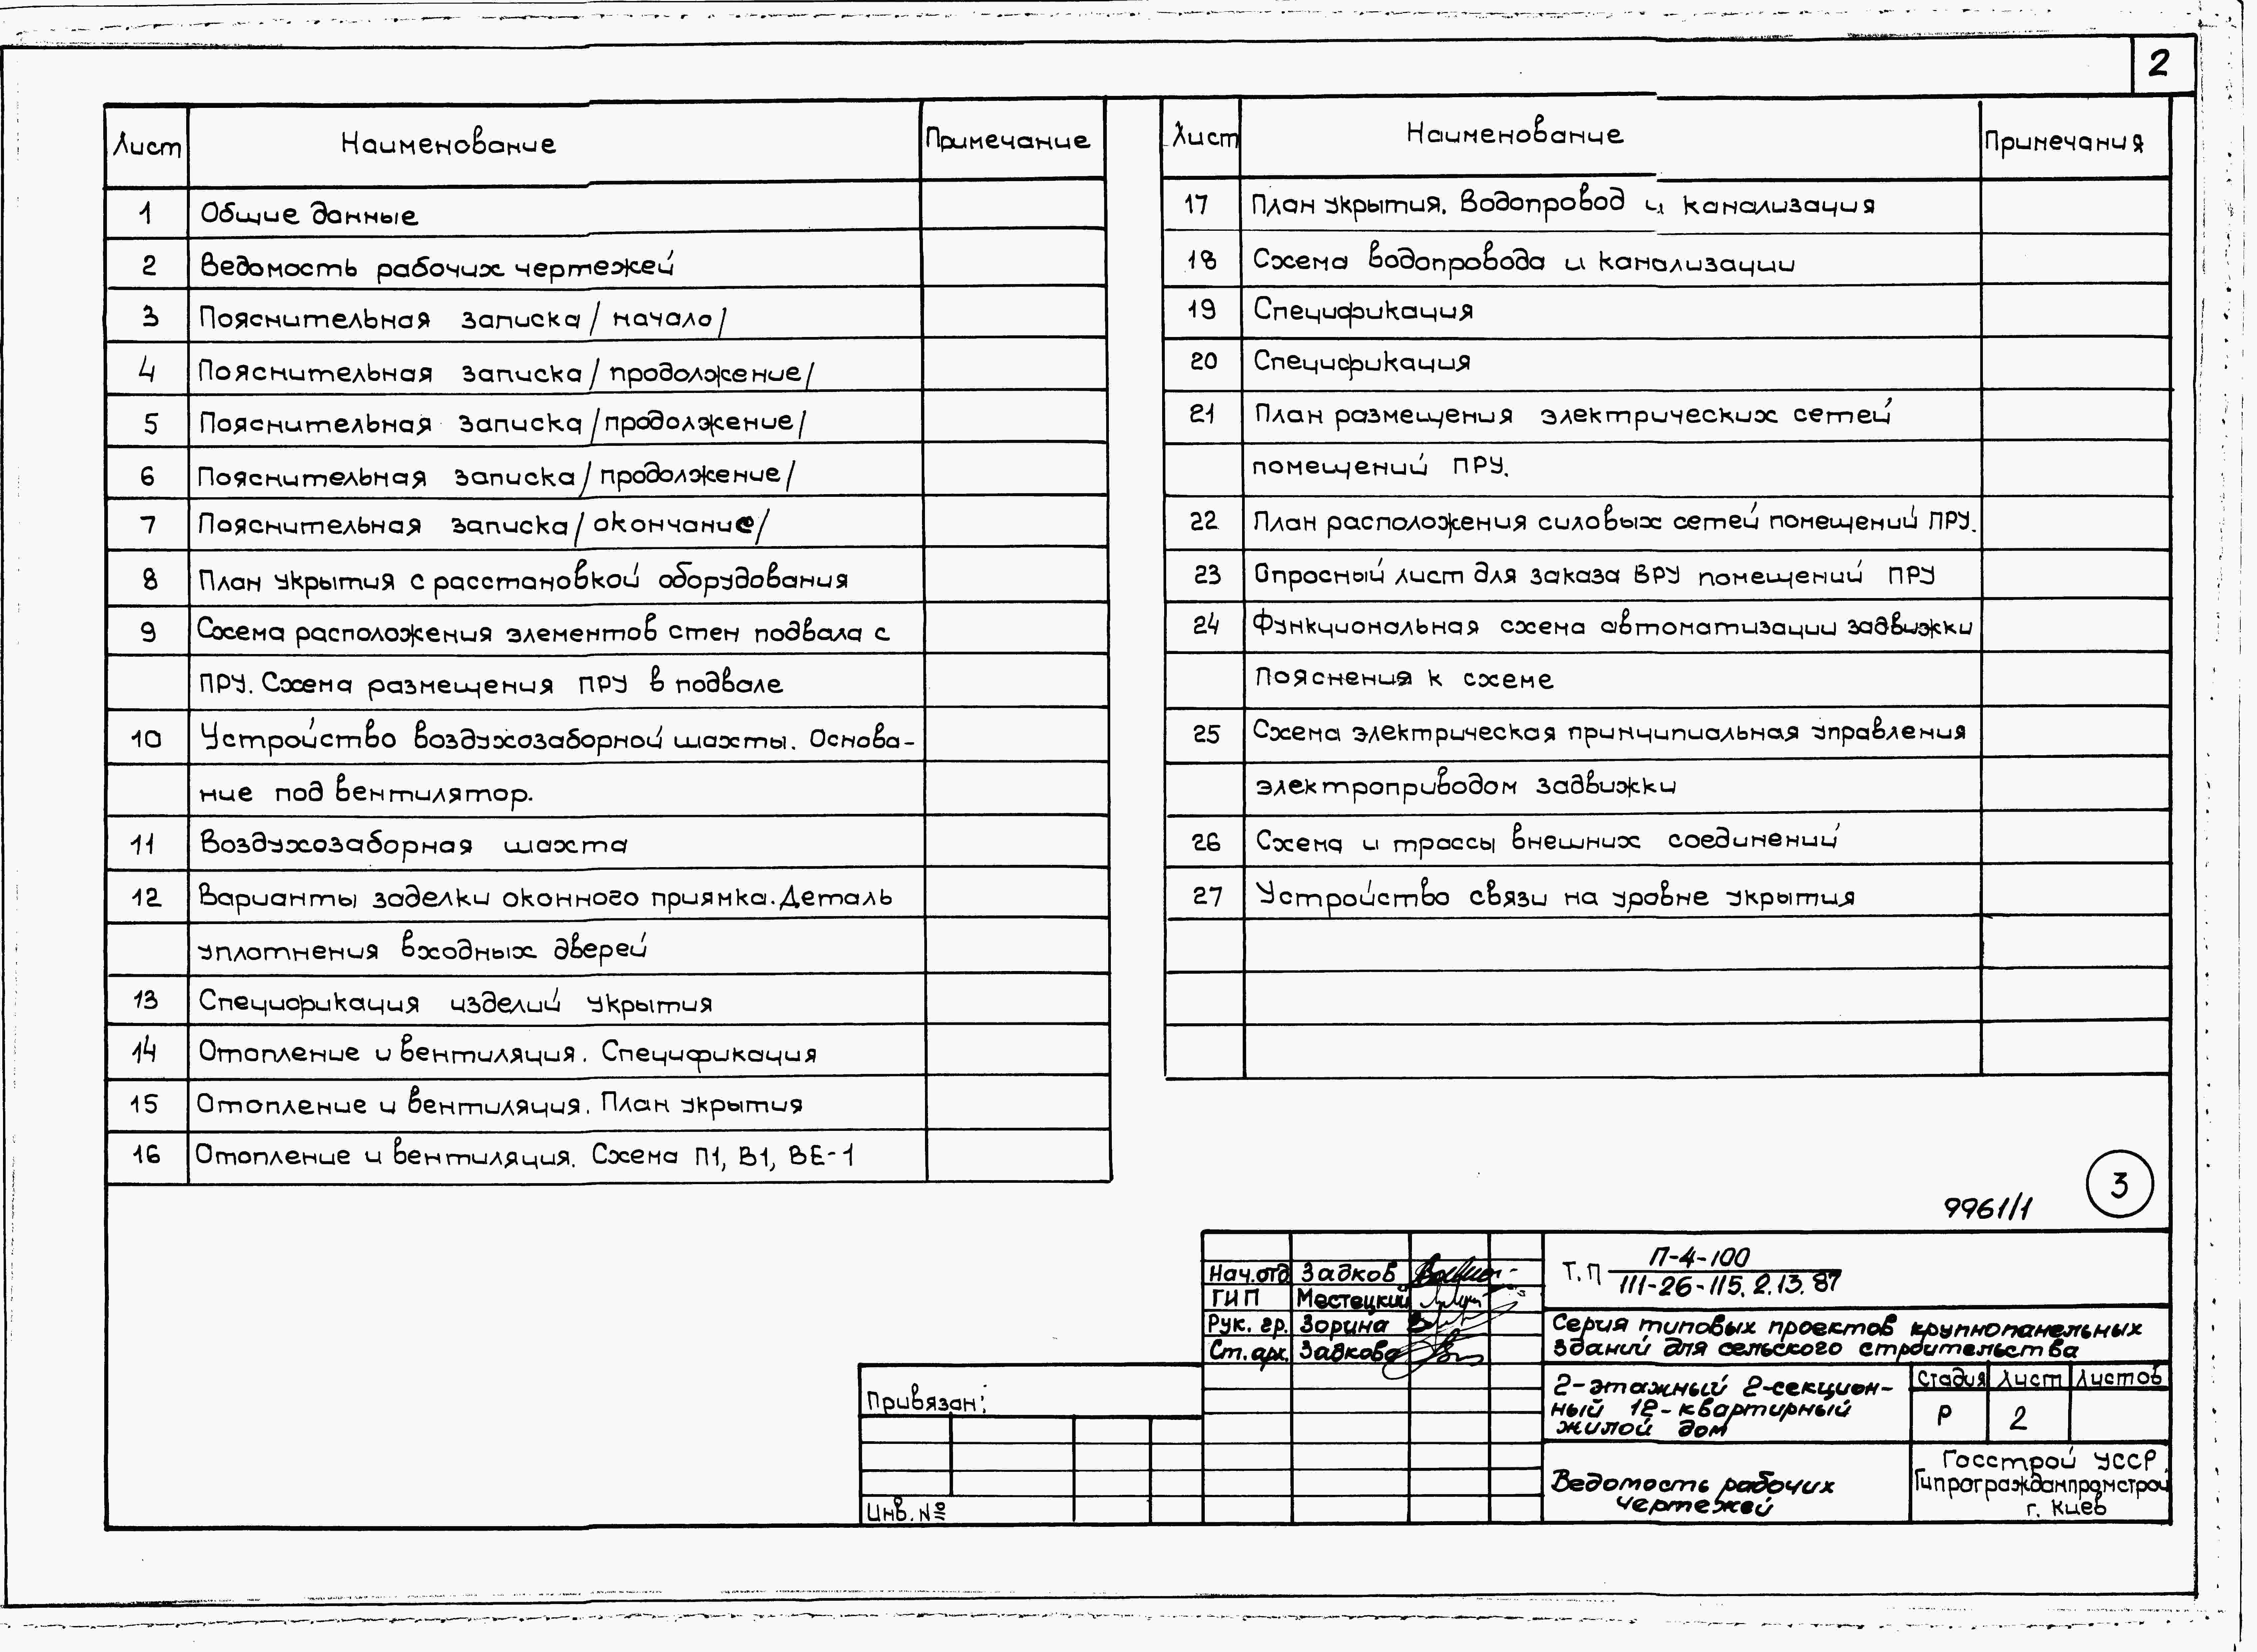 2
Лист Наименование Примечание
1 Общие данные
2 Ведомость рабочих чертежей
3 Пояснительная записка /начало/
4 Пояснительная записка /продолжение/
5 Пояснительная записка /продолжение/
6 Пояснительная записка /продолжение/
7 Пояснительная записка /окончание/
8 План укрытия с расстановкой оборудования
9 Схема расположения элементов стен подвала с
ПРУ. Схема размещения ПРУ в подвале
10 Устройство воздухозаборной шахты. Основа-
ние под вентилятор.
11 Воздухозаборная шахта
12 Варианты заделки оконного приямка. Деталь
уплотнения входных дверей
13 Спецификация изделий укрытия
14 Отопление и вентиляция. Спецификация
15 Отопление и вентиляция. План укрытия
16 Отопление и вентиляция. Схема П1, В1, ВЕ-1
Лист Наименование Примечания
17 План укрытия. Водопровод и канализация
18 Схема водопровода и канализации
19 Спецификация
20 Спецификация
21 План размещения электрических сетей
помещений ПРУ.
22 План расположения силовых сетей помещений ПРУ.
23 Опросный лист для заказа ВРУ помещений ПРУ
24 Функциональная схема автоматизации задвижки
Пояснения к схеме
25 Схема электрическая принципиальная управления
электроприводом задвижки
26 Схема и трассы внешних соединений
27 Устройство связи на уровне укрытия
3
9961/1
Нач.отд Задков
ГИП Местецкий
Рук. гр. Зорина
Ст. арх. Задкова
Т.П П-4-100
111-26-115.2.13.87
Серия типовых проектов крупнопанельных
зданий для сельского строительства
2-этажный 2-секцион-
ный 12-квартирный
жилой дом
Стадия Лист Листов
Р 2
Ведомость рабочих
чертежей
Госстрой УССР
Гипрогражданпромстрой
г. Киев
Привязан:
Инв. №